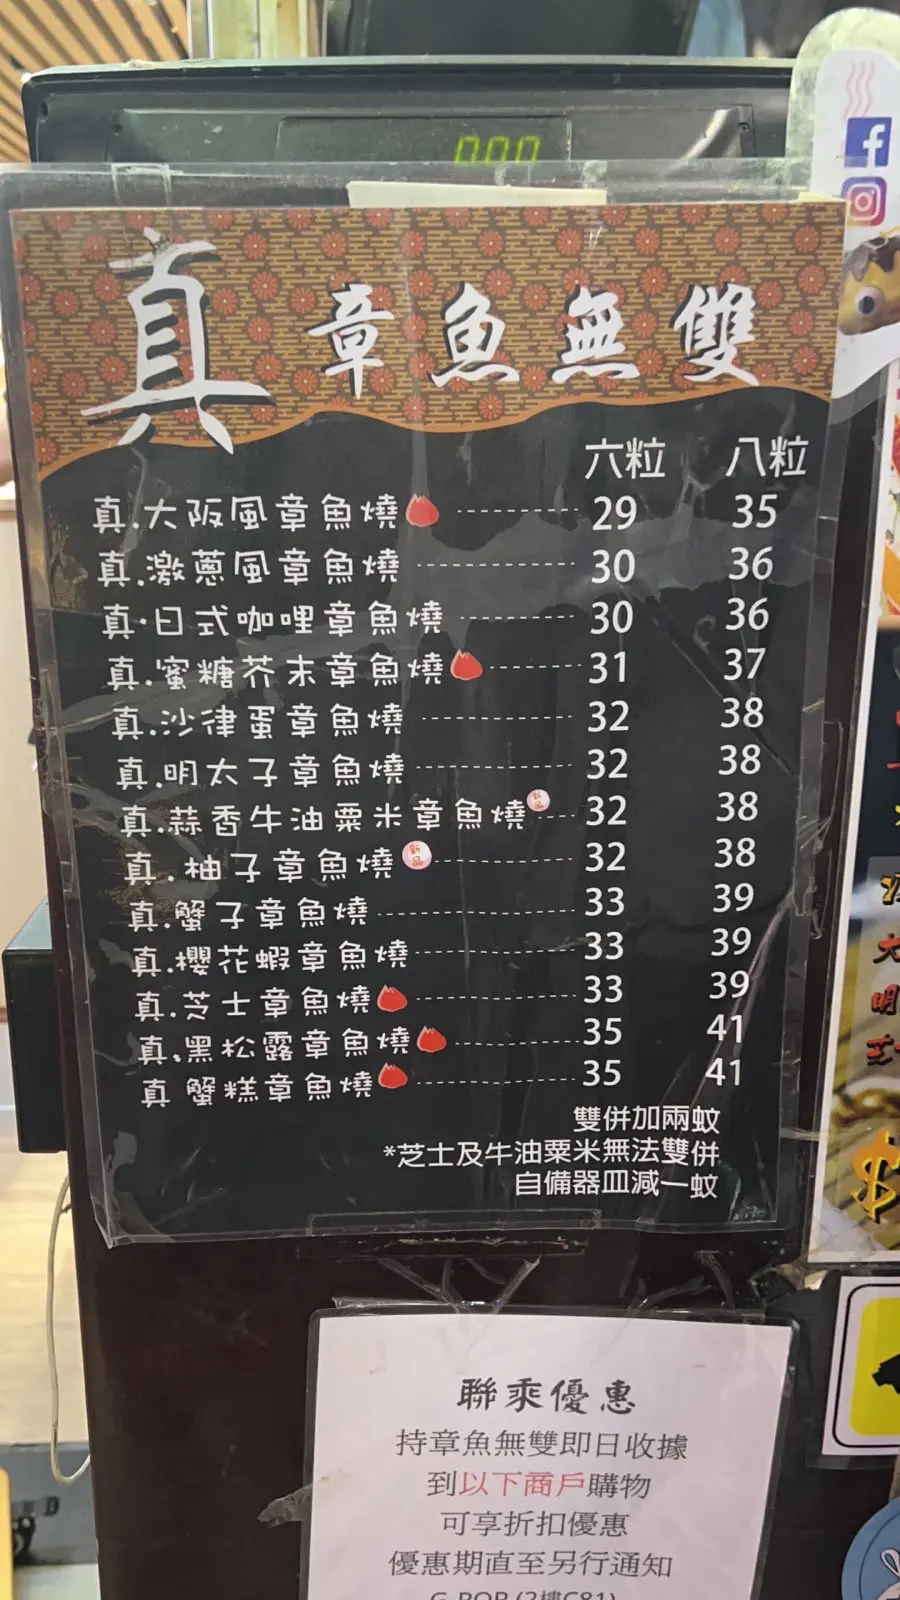 0.00
真 章魚無雙
六粒 八粒
真.大阪風章魚燒 29 35
真.激蔥風章魚燒 30 36
真.日式咖哩章魚燒 30 36
真.蜜糖芥末章魚燒 31 37
真.沙律蛋章魚燒 32 38
真.明太子章魚燒 32 38
真.蒜香牛油粟米章魚燒 新品 32 38
真.柚子章魚燒 新品 32 38
真.蟹子章魚燒 33 39
真.櫻花蝦章魚燒 33 39
真.芝士章魚燒 33 39
真.黑松露章魚燒 35 41
真 蟹糕章魚燒 35 41
雙併加兩蚊
*芝士及牛油粟米無法雙併
自備器皿減一蚊
聯乘優惠
持章魚無雙即日收據
到以下商戶購物
可享折扣優惠
優惠期直至另行通知
G-POP (2樓C81)
大
明
$